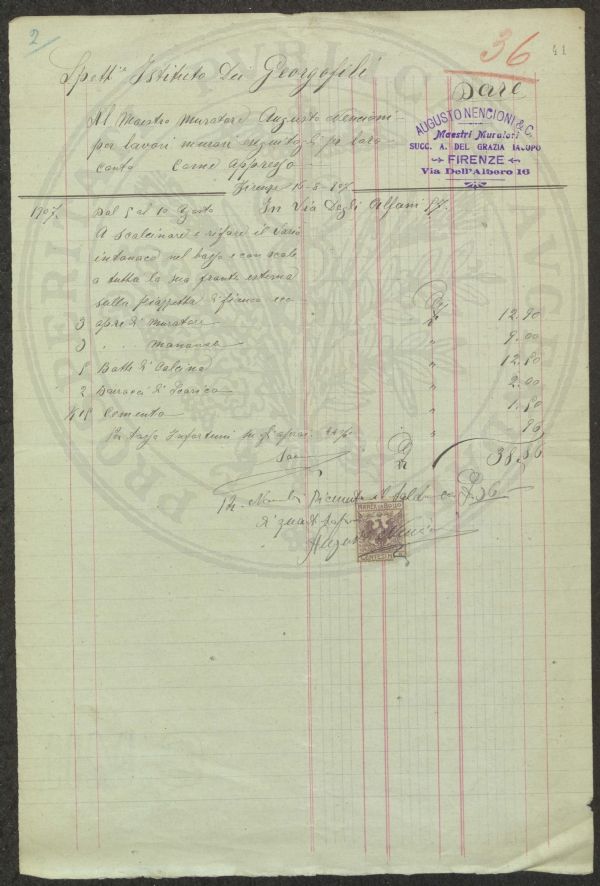 2
36
41
Spett. Istituto Dei Georgofili
Dare
Al Maestro Muratore Augusto Nencioni
per lavori murari eseguitogli per loro
conto come appresso
AUGUSTO NENCIONI & C.
Maestri Muratori
SUCC. A. DEL GRAZIA IACOPO
FIRENZE
Via Dell'Albero 16
Firenze 16-8-907.
1907. Dal 5 al 10 Agosto In Via Degli Alfani 57.
A Scalcinare e rifare il
intonaco nel basso e con scale
a tutta la sua fronte esterna
sulla piazzetta di fianco ecc
3 opre di Muratore 12.90
3 " Manovale " 9.00
5 Balle di Calcina " 12.50
2 Barrocci di Scarico " 2.00
Cemento " 1.50
Per tassa Infortuni su gli operai "
38.
il saldo
MARCA DA BOLLO
CENTESIMI
Augusto Nencioni
PROSPERITATI PUBLICAE AUGENDAE